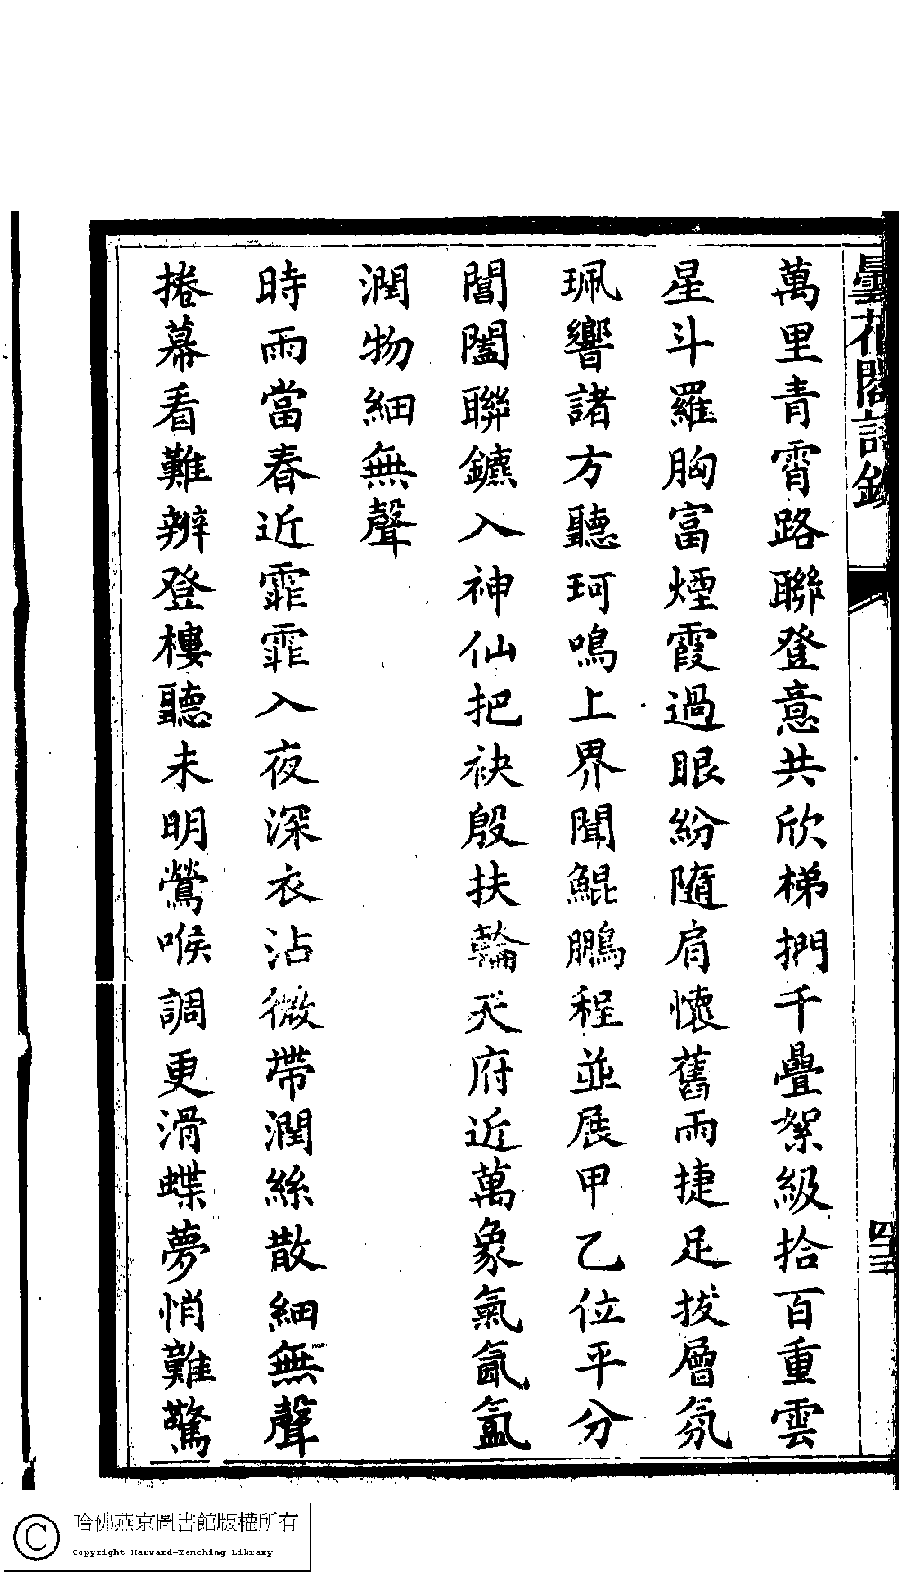 曇花閣詩鈔
四十三
萬里青霄路聯登意共欣梯捫千疊絮級拾百重雲
星斗羅胸富煙霞過眼紛隨肩懷舊雨捷足拔層氛
珮響諸方聽珂鳴上界聞鯤鵬程並展甲乙位平分
閶闔聯鑣入神仙把袂殷扶輪天府近萬象氣氤氳
潤物細無聲
時雨當春近霏霏入夜深衣沾微帶潤絲散細無聲
捲幕看難辨登樓聽未明鶯喉調更滑蝶夢悄難驚
哈佛燕京圖書館版權所有
Copyright Harvard-Yenching Library